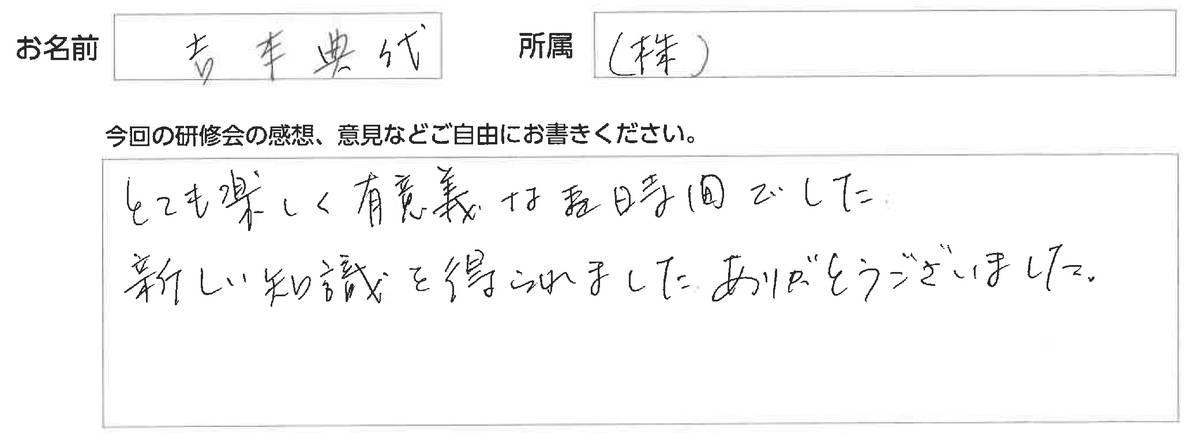 お名前 吉本典代 所属 (株)
今回の研修会の感想、意見などご自由にお書きください。
とても楽しく有意義な五時間でした。
新しい知識を得られました。ありがとうございました。